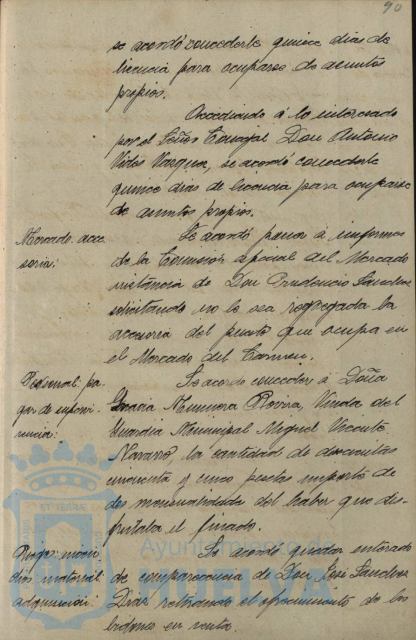 90
se acordó concederle quince dias de
licencia para ocuparse de asuntos
propios.
Accediendo á lo interesado
por el Señor Concejal Don Antonio
Vides Vazquez, se acordó concederle
quince dias de licencia para ocuparse
de asuntos propios.
Mercado. acce
soria:
Se acordó pasar á informe
de la Comisión especial del Mercado
instancia de Don Prudencio Sanchez
solicitando no le sea segregada la
accesoria del puesto que ocupa en
el Mercado del Carmen.
Personal: pa
gas de supervi
vencia:
Se acordó conceder á Doña
Gracia Rivera, Viuda del
Guardia Municipal Miguel Vicente
Navarro la cantidad de doscientas
cincuenta y cinco pesetas importe de
dos mensualidades del haber que dis-
frutaba el finado.
material
adquisición:
Se acordó quedar enterado
de comparecencia de Don José Sanchez
Diaz retirando el ofrecimiento de los
bidones en venta
Ayuntamiento de
HUELVA